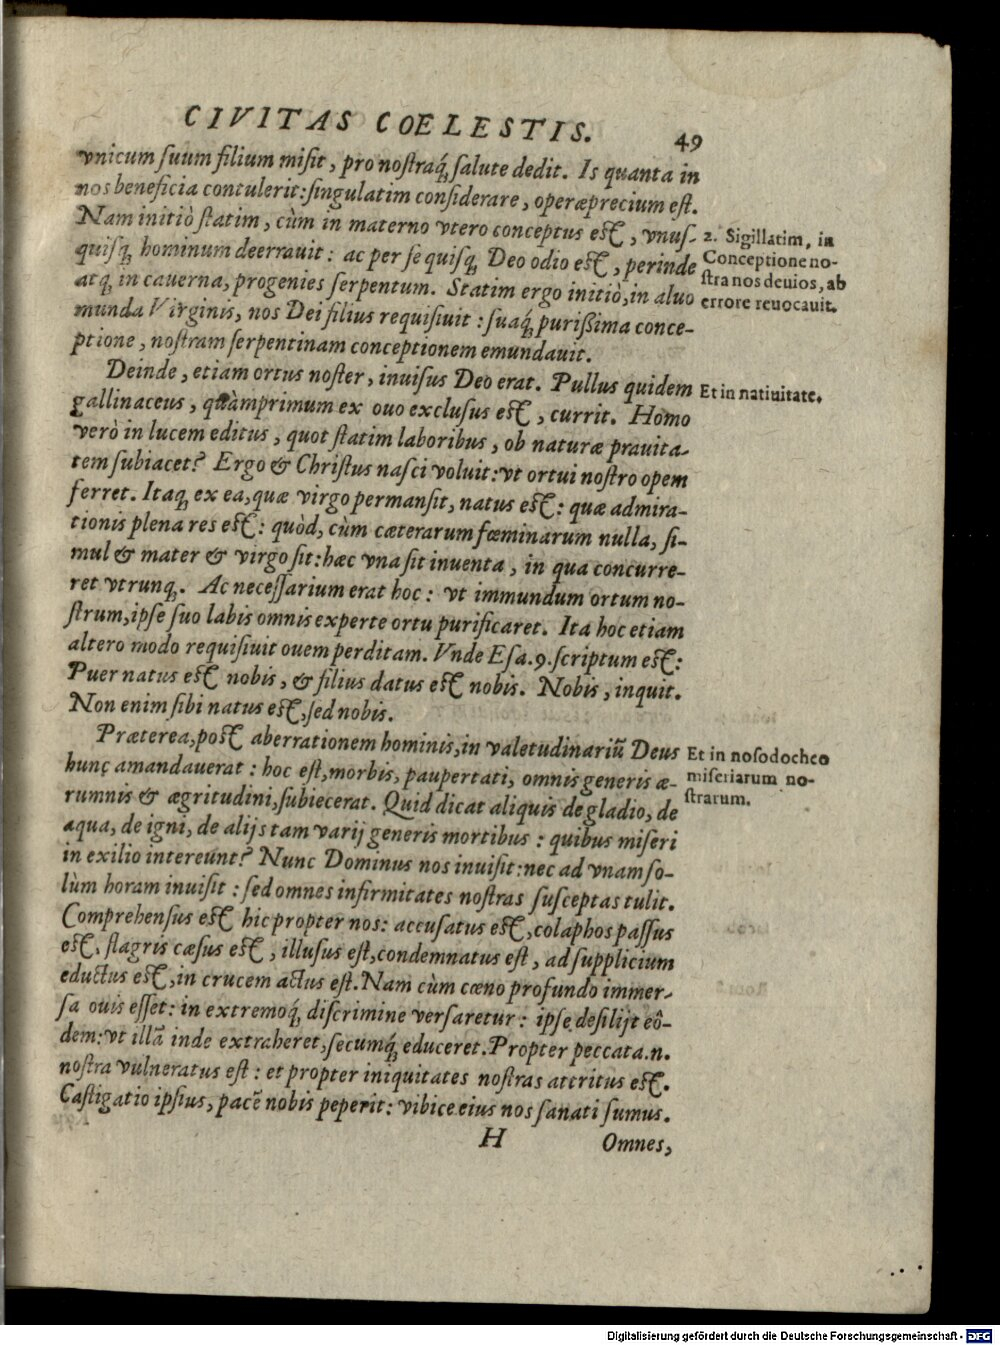 CIVITAS COELESTIS.
49
vnicum ſuum filium miſit, pro noſtraq́; ſalute dedit. Is quanta in
nos beneficia contulerit: ſingulatim conſiderare, operæprecium eſt.
Nam initiò ſtatim, cùm in materno vtero conceptus eſt, vnuſ-
quiſq; hominum deerrauit: ac per ſe quiſq; Deo odio eſt, perinde
atq; in cauerna, progenies ſerpentum. Statim ergo initiò, in aluo
munda Virginis, nos Dei filius requiſiuit: ſuaq́; purißima conce-
ptione, noſtram ſerpentinam conceptionem emundauit.
2. Sigillatim, in
Conceptione no-
ſtra nos deuios, ab
errore reuocauit.
Deinde, etiam ortus noſter, inuiſus Deo erat. Pullus quidem
gallinaceus, quàmprimum ex ouo excluſus eſt, currit. Homo
verò in lucem editus, quot ſtatim laboribus, ob naturæ prauita-
tem ſubiacet? Ergo & Chriſtus naſci voluit: vt ortui noſtro opem
ferret. Itaq; ex ea, quæ virgo permanſit, natus eſt: quæ admira-
tionis plena res eſt: quòd, cùm cæterarum fœminarum nulla, ſi-
mul & mater & virgo ſit: hæc vna ſit inuenta, in qua concurre-
ret vtrunq;. Ac neceſſarium erat hoc: vt immundum ortum no-
ſtrum, ipſe ſuo labis omnis experte ortu purificaret. Ita hoc etiam
altero modo requiſiuit ouem perditam. Vnde Eſa. 9. ſcriptum eſt:
Puer natus eſt nobis, & filius datus eſt nobis. Nobis, inquit.
Non enim ſibi natus eſt, ſed nobis.
Et in natiuitate.
Præterea, poſt aberrationem hominis, in valetudinariũ Deus
hunc amandauerat: hoc eſt, morbis, paupertati, omnis generis æ-
rumnis & ægritudini, ſubiecerat. Quid dicat aliquis de gladio, de
aqua, de igni, de alijs tam varij generis mortibus: quibus miſeri
in exilio intereunt? Nunc Dominus nos inuiſit: nec ad vnam ſo-
lùm horam inuiſit: ſed omnes infirmitates noſtras ſuſceptas tulit.
Comprehenſus eſt hic propter nos: accuſatus eſt, colaphos paſſus
eſt, flagris cæſus eſt, illuſus eſt, condemnatus eſt, ad ſupplicium
eductus eſt, in crucem actus eſt. Nam cùm cœno profundo immer-
ſa ouis eſſet: in extremoq́; diſcrimine verſaretur: ipſe deſilijt eô-
dem: vt illã inde extraheret, ſecumq́; educeret. Propter peccata .n.
noſtra vulneratus eſt: et propter iniquitates noſtras attritus eſt.
Caſtigatio ipſius, pacẽ nobis peperit: vibice eius nos ſanati ſumus.
Et in noſodocheo
miſeriarum no-
ſtrarum.
H
Omnes,
Digitalisierung gefördert durch die Deutsche Forschungsgemeinschaft - DFG